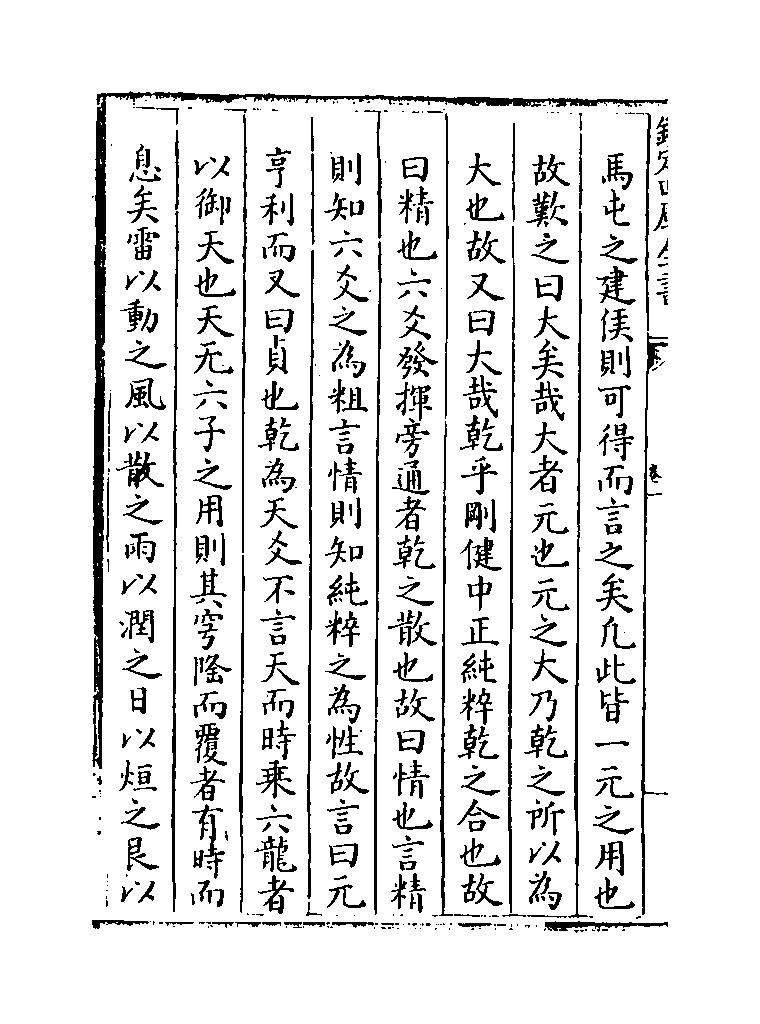 馬屯之建侯則可得而言之矣凡此皆一元之用也
故歎之曰大矣哉大者元也元之大乃乾之所以為
大也故又曰大哉乾乎剛健中正純粹乾之合也故
曰精也六爻發揮旁通者乾之散也故曰情也言精
則知六爻之為粗言情則知純粹之為性故言曰元
亨利而又曰貞也乾為天爻不言天而時乘六龍者
以御天也天无六子之用則其穹隆而覆者有時而
息矣雷以動之風以散之雨以潤之日以烜之艮以